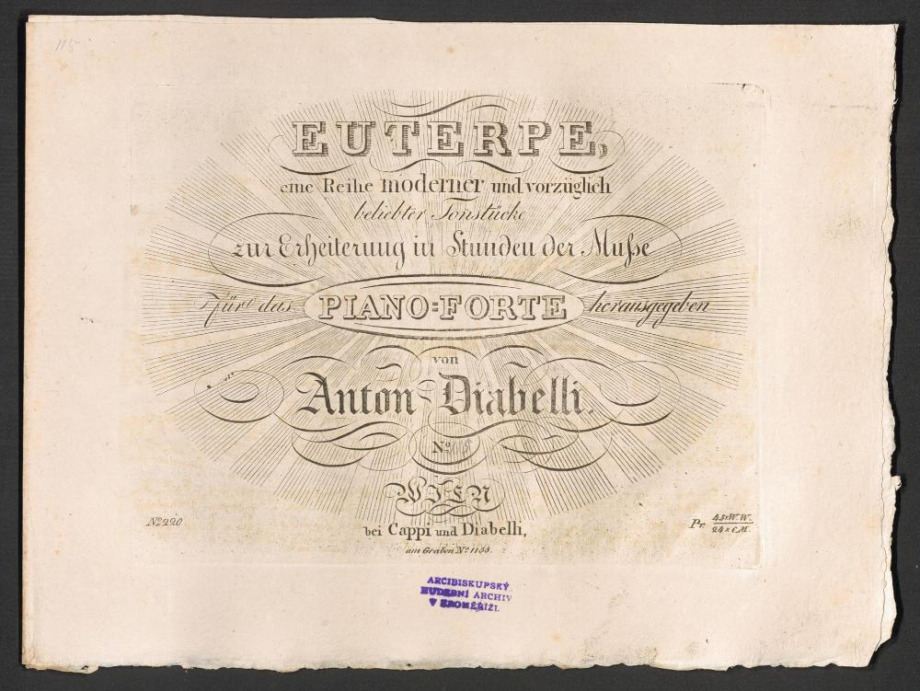 115
EUTERPE,
eine Reihe moderner und vorzüglich
beliebter Tonstücke
zur Erheiterung in Stunden der Muße
Für das PIANO=FORTE herausgegeben
von
Anton Diabelli.
No
WIEN
No 220
bei Cappi und Diabelli,
am Graben No 1133.
Pr. 45 x W.W.
24 x C.M.
ARCIBISKUPSKÝ
HUDEBNÍ ARCHIV
V KROMĚŘÍŽI.